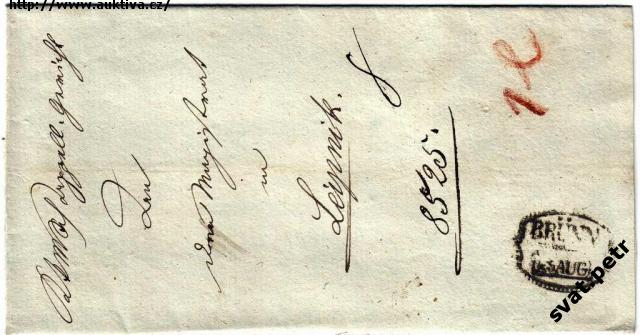 http://www.auktiva.cz/
Appell. Gericht
Den
Magistrat
in
Leipnik.
8
8525.
BRÜNN
AUG
svat.petr